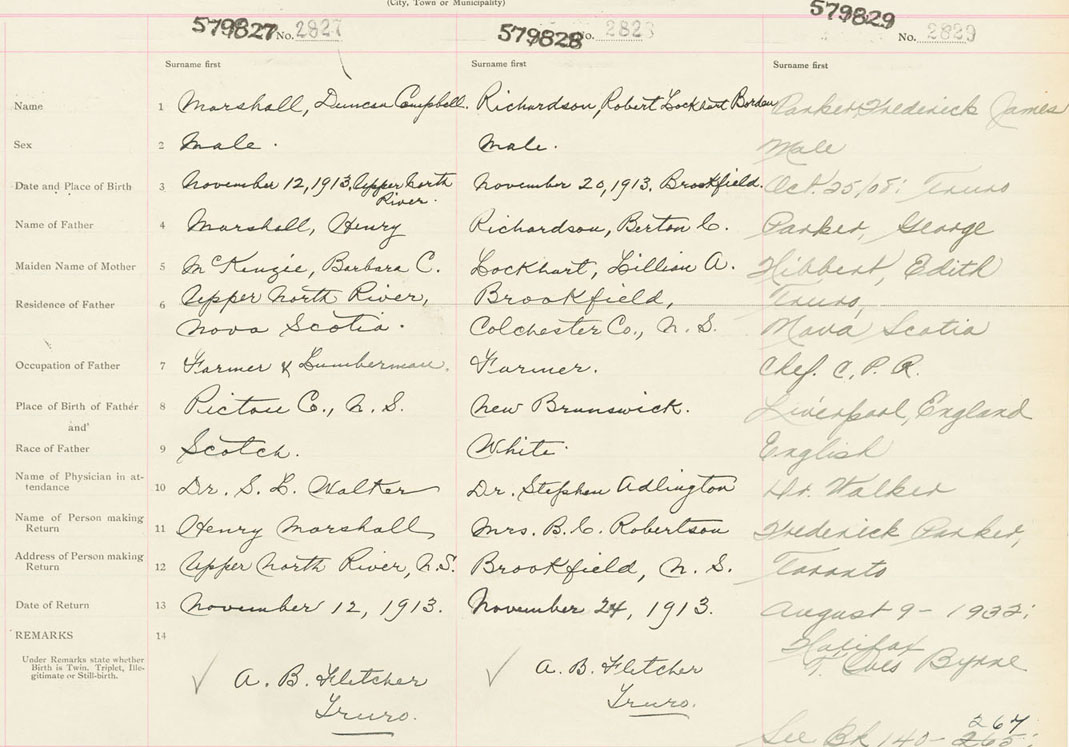 (City, Town or Municipality)
579827 No. 2827 579828 No. 2828 579829 No. 2829
Surname first Surname first Surname first
Name 1 Marshall, Duncan Campbell. Richardson, Robert Lockhart Borden Parker, Frederick James
Sex 2 Male. Male. Male
Date and Place of Birth 3 November 12, 1913, Upper North River. November 20, 1913. Brookfield. Oct. 25/08: Truro
Name of Father 4 Marshall, Henry Richardson, Berton C. Parker, George
Maiden Name of Mother 5 McKenzie, Barbara C. Lockhart, Lillian A. Hibbert, Edith
Residence of Father 6 Upper North River, Brookfield, Truro,
Nova Scotia. Colchester Co., N. S. Nova Scotia
Occupation of Father 7 Farmer & Lumberman. Farmer. Chef. C. P. R.
Place of Birth of Father 8 Pictou C., N. S. New Brunswick. Liverpool, England
and
Race of Father 9 Scotch. White. English
Name of Physician in at-
tendance 10 Dr. S. L. Walker Dr. Stephen Adlington Dr. Walker
Name of Person making
Return 11 Henry Marshall Mrs. B. C. Robertson Frederick Parker,
Address of Person making
Return 12 Upper North River, N.S. Brookfield, N. S. Toronto
Date of Return 13 November 12, 1913. November 24, 1913. August 9 - 1932:
REMARKS 14 Halifax
Under Remarks state whether
Birth is Twin. Triplet, Ille-
gitimate or Still-birth.
A. B. Fletcher A. B. Fletcher Byrne
Truro. Truro.
See Bk 140 - 265: 267